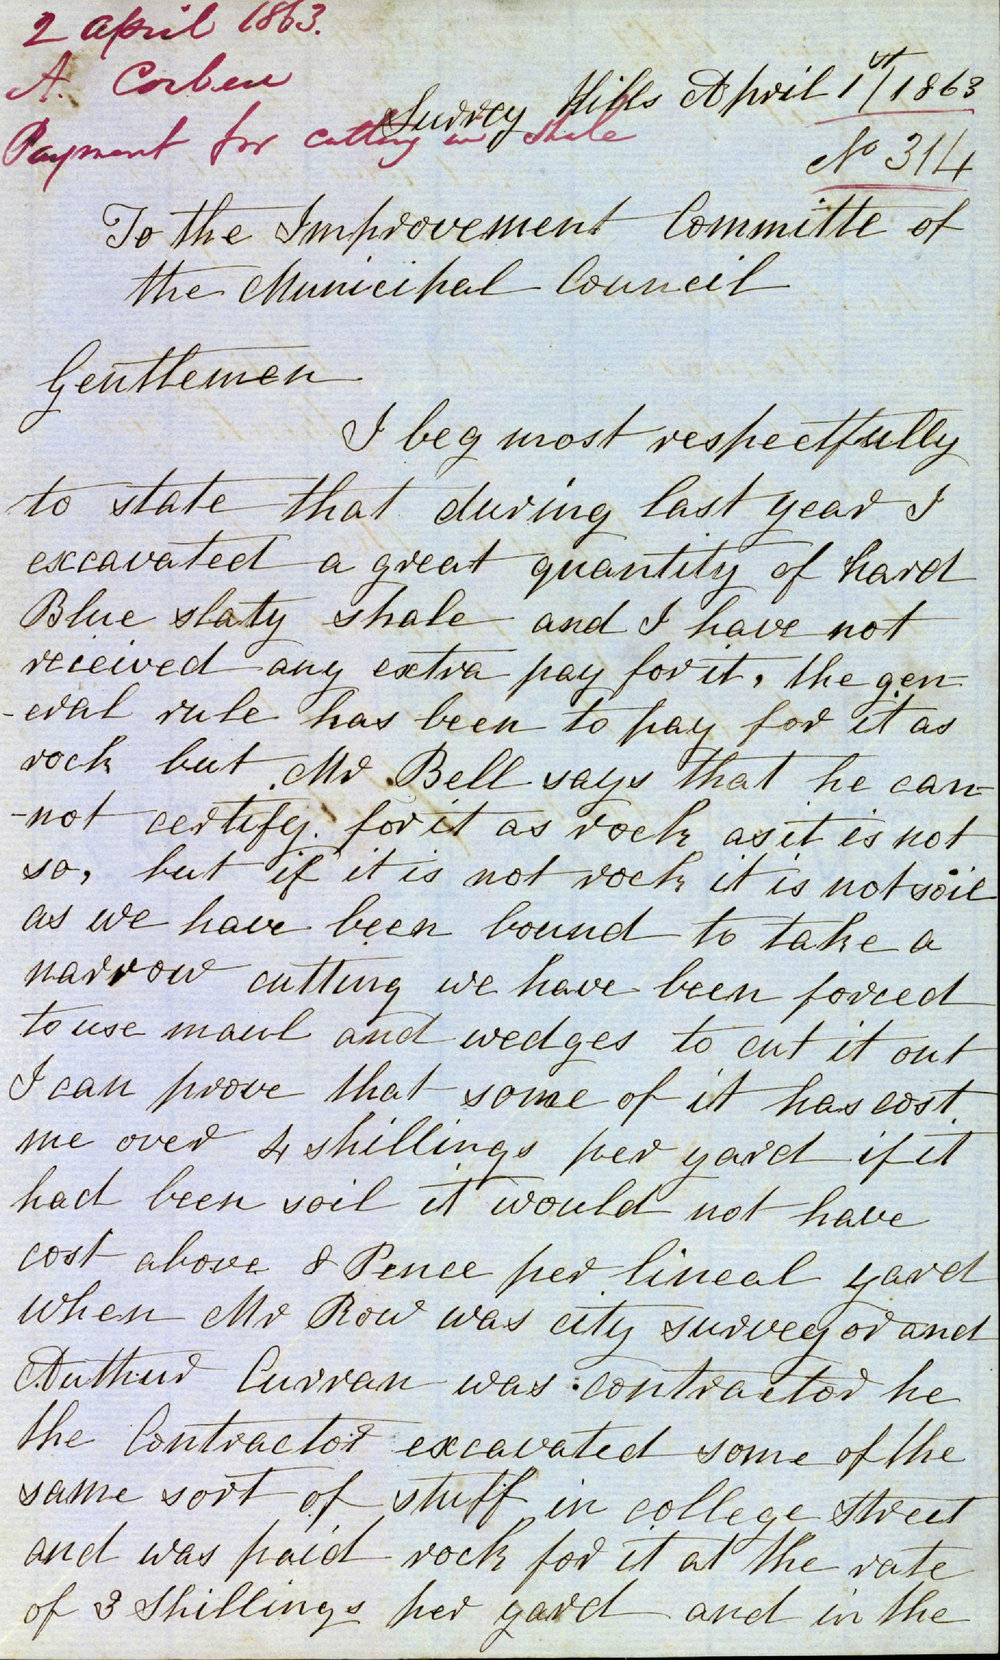 2 April 1863.
A. Corben
Payment for cutting in shale
Surrey Hills April 1st/1863
No 314
To the Improvement Committe of
the Municipal Council
Gentlemen
I beg most respectfully
to state that during last year I
excavated a great quantity of hard
Blue slaty shale and I have not
received any extra pay for it, the gen-
-eral rule has been to pay for it as
rock but Mr Bell says that he can-
-not certify for it as rock as it is not
so, but if it is not rock it is not soil
as we have been bound to take a
narrow cutting we have been forced
to use maul and wedges to cut it out
I can prove that some of it has cost
me over 4 shillings per yard if it
had been soil it would not have
cost above 8 Pence per lineal yard
when Mr Row was city surveyor and
Authur Curran was contractor he
the Contractor excavated some of the
same sort of stuff in college street
and was paid rock for it at the rate
of 3 Shillings per yard and in the